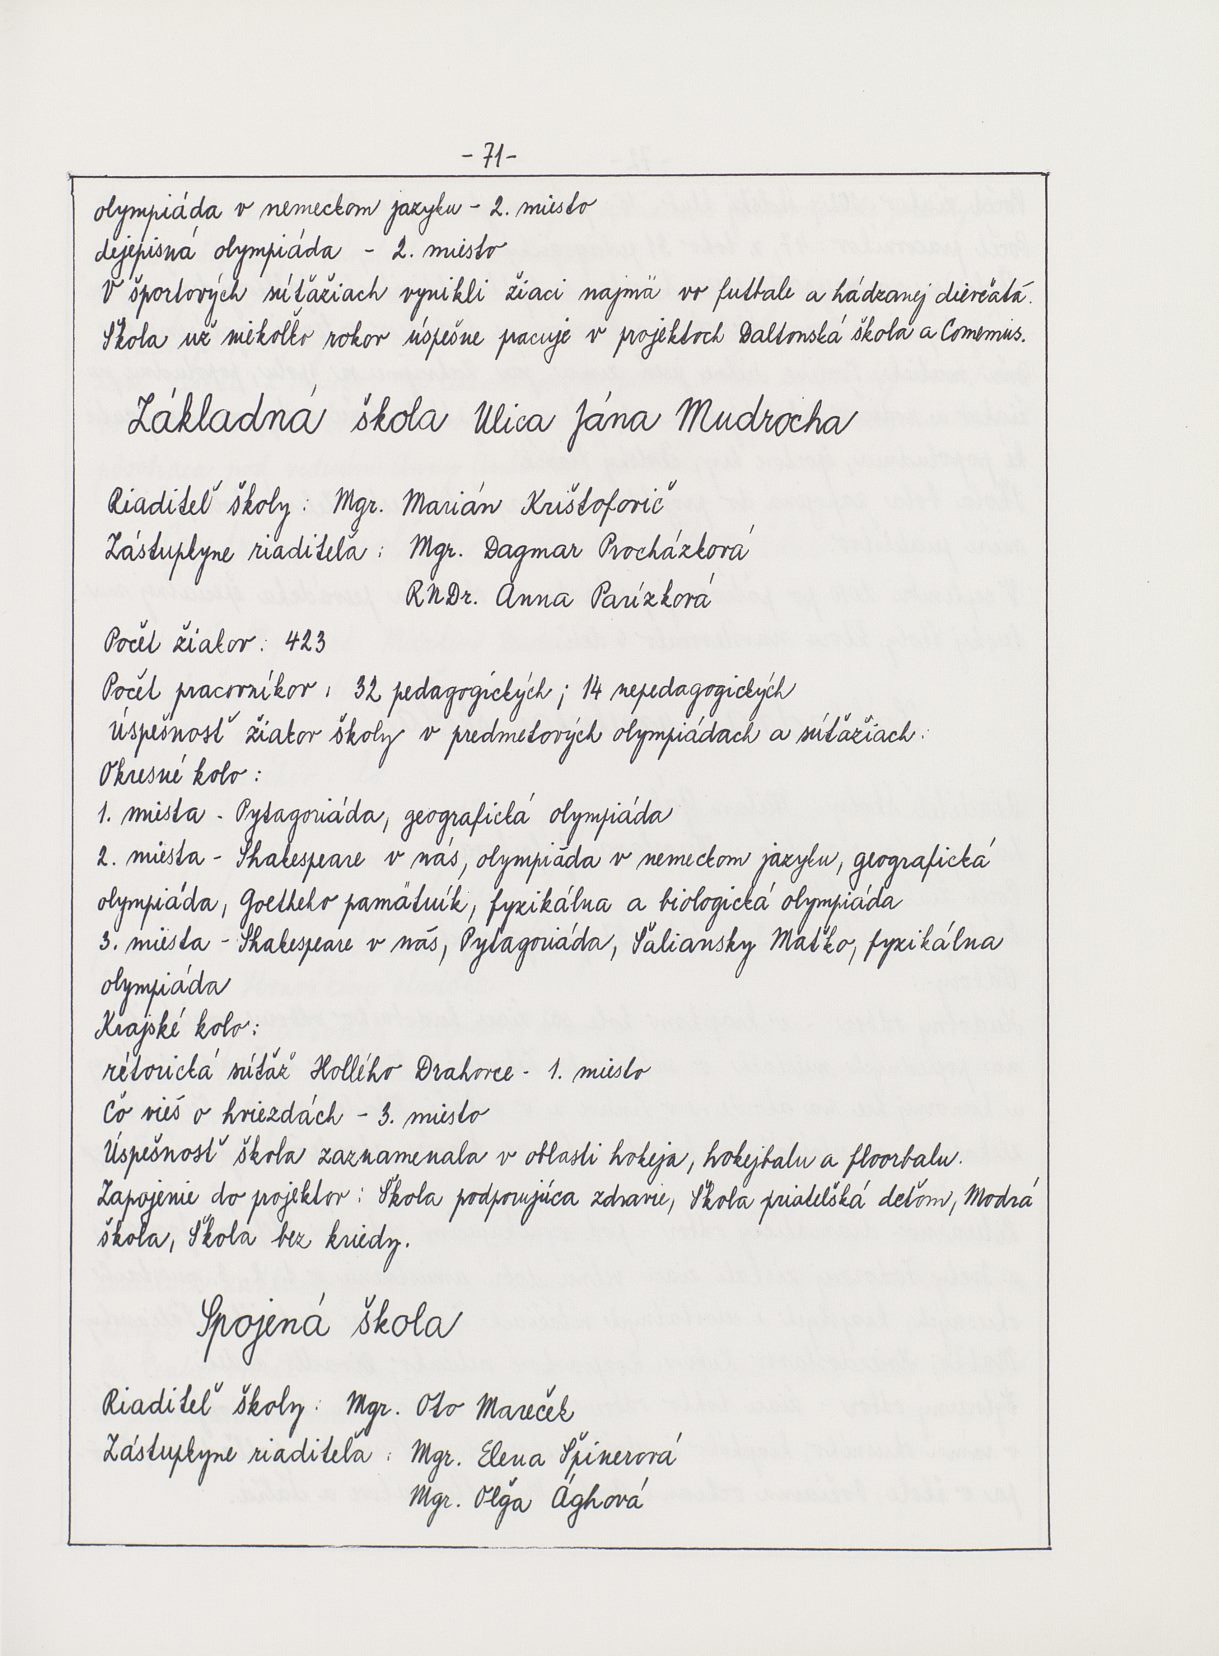 - 71 -
olympiáda v nemeckom jazyku - 2. miesto
dejepisná olympiáda - 2. miesto
V športových súťažiach vynikli žiaci najmä vo futbale a hádzanej dievčatá.
Škola už niekoľko rokov úspešne pacuje v projektoch Daltonská škola a Comenius.
Základná škola Ulica Jána Mudrocha
Riaditeľ školy: Mgr. Marián Krištofovič
Zástupkyne riaditeľa: Mgr. Dagmar Procházková
RNDr. Anna Parízková
Počet žiakov: 423
Počet pracovníkov: 32 pedagogických; 14 nepedagogických
Úspešnosť žiakov školy v predmetových olympiádach a súťažiach:
Okresné kolo:
1. miesta - Pytagoriáda, geografická olympiáda
2. miesta - Shakespeare v nás, olympiáda v nemeckom jazyku, geografická
olympiáda, Goetheho pamätník, fyzikálna a biologická olympiáda
3. miesta - Shakespeare v nás, Pytagoriáda, Šaliansky Maťko, fyzikálna
olympiáda
Krajské kolo:
rétorická súťaž Hollého Drahovce - 1. miesto
Čo vieš o hviezdách - 3. miesto
Úspešnosť škola zaznamenala v oblasti hokeja, hokejbalu a floorbalu.
Zapojenie do projektov: Škola podporujúca zdravie, Škola priateľská deťom, Modrá
škola, Škola bez kriedy.
Spojená škola
Riaditeľ školy: Mgr. Oto Mareček
Zástupkyne riaditeľa: Mgr. Elena Špinerová
Mgr. Oľga Ághová